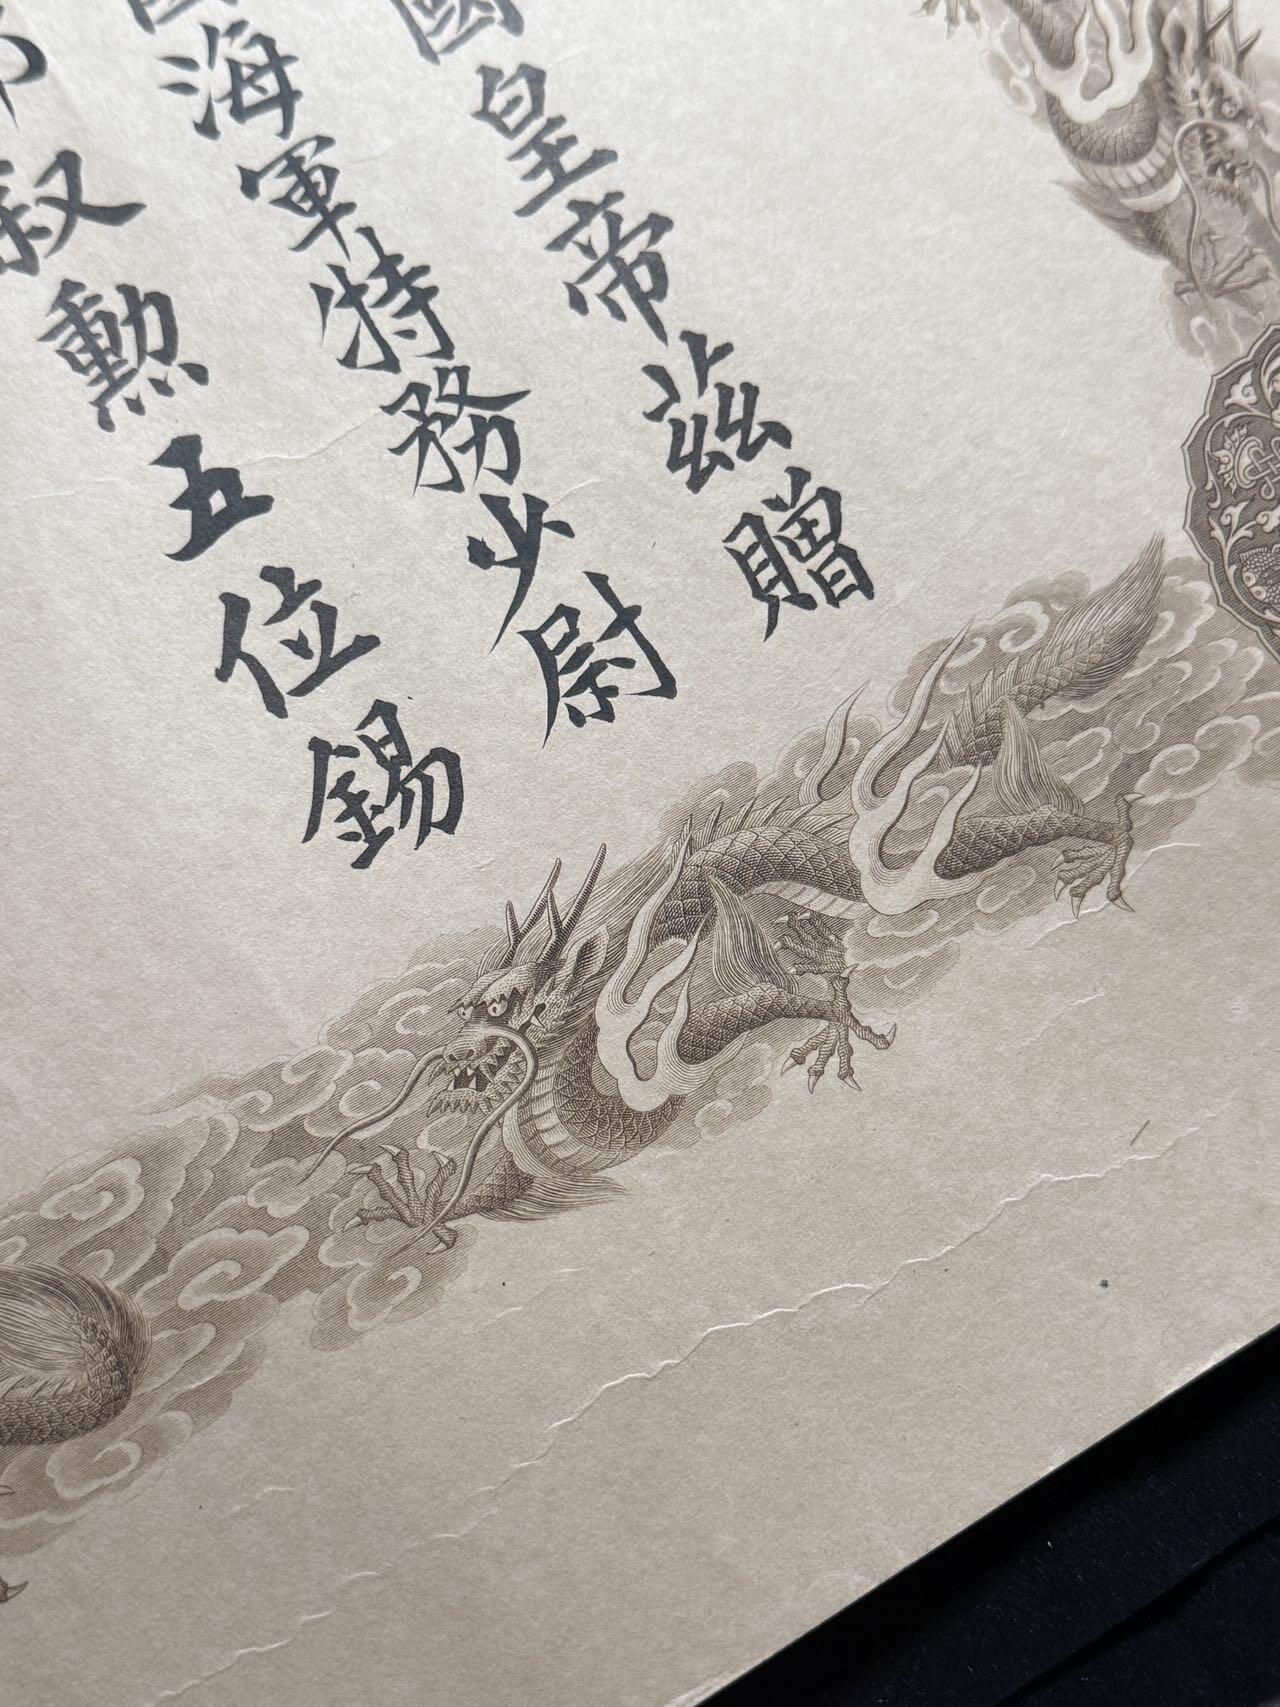 國皇帝茲贈
國海軍特務少尉
叙勲五位錫